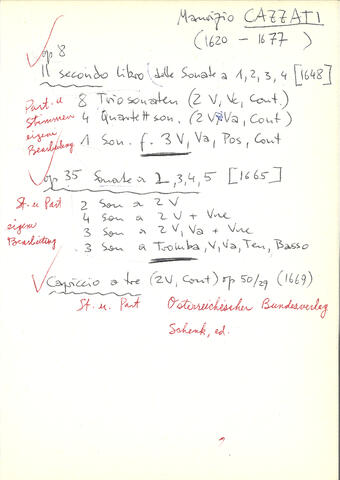 Maurizio CAZZATI
(1620 - 1677)
op 8
Il secondo libro (delle Sonate a 1, 2, 3, 4 [1648]
Part. u Stimmen eigene Bearbeitung
8 Triosonaten (2 V, Vc, Cont.)
4 Quartettson. (2 V, Va, Cont)
1 Son. f. 3 V, Va, Pos, Cont
op 35 Sonate a 2, 3, 4, 5 [1665]
St. u. Part
eigene Bearbeitung
2 Son a 2 V
4 Son a 2 V + Vne
3 Son a 2 V, Va + Vne
3 Son a Tromba, V, Va, Ten, Basso
Capriccio a tre (2V, Cont) op 50/29 (1669)
St. u. Part
Österreichischer Bundesverlag
Schenk, ed.